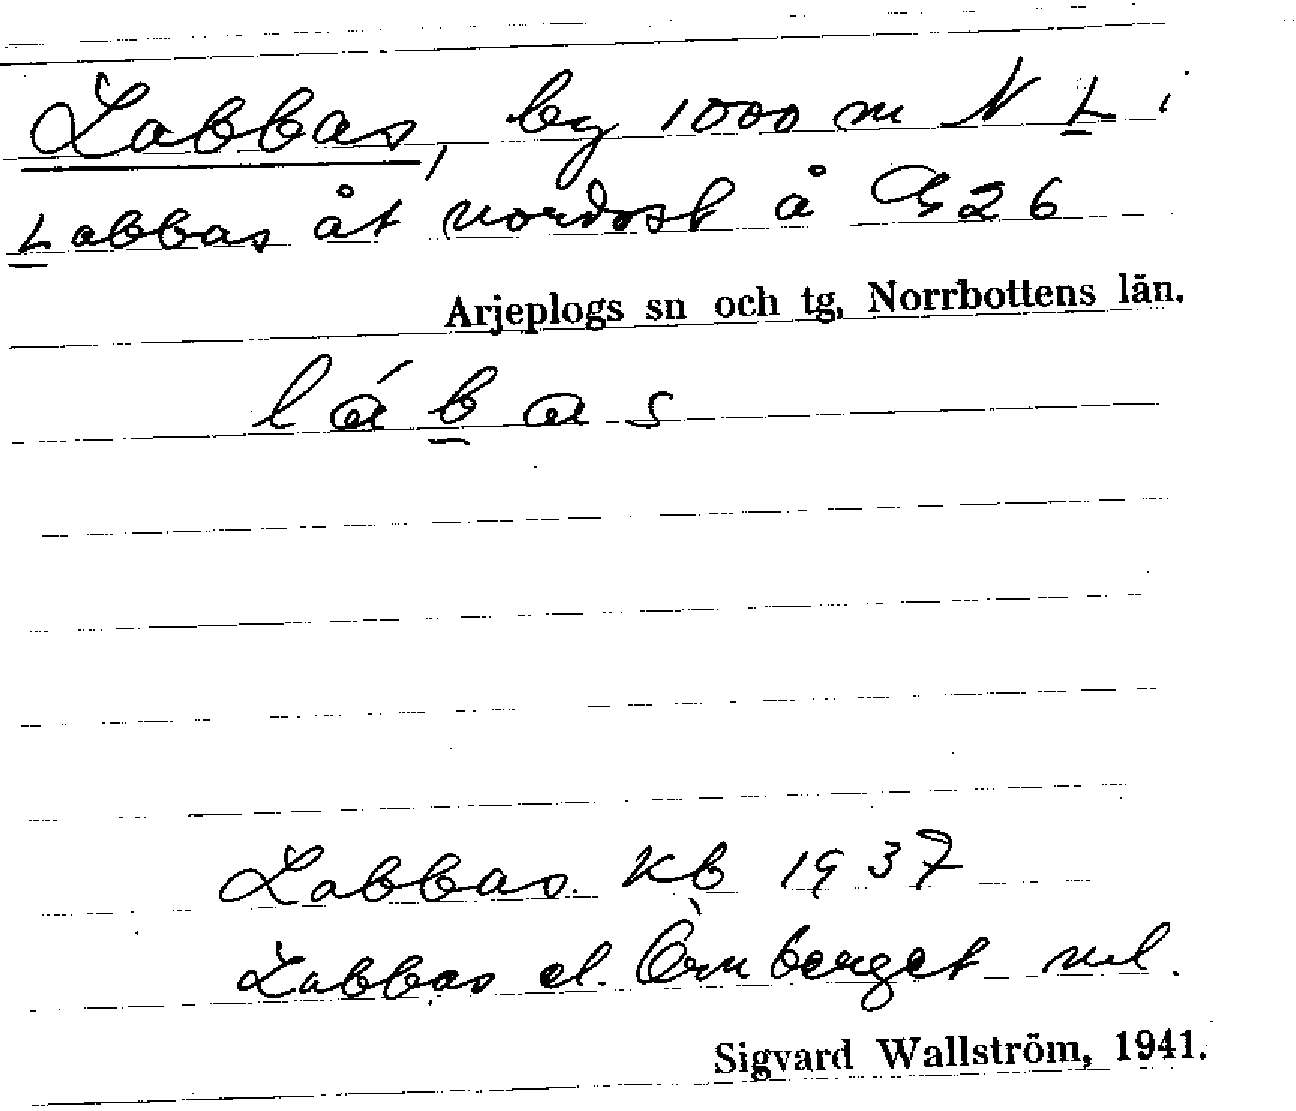 Labbas, by 1000 m N L i
Labbas åt nordost å G 26
Arjeplogs sn och tg, Norrbottens län.
lábas
Labbas Kb 1937
Labbas el. Örnberget ml.
Sigvard Wallström, 1941.